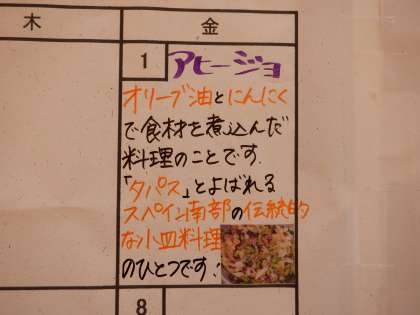 木 金
1 アヒージョ
オリーブ油とにんにく
で食材を煮込んだ
料理のことです.
「タパス」とよばれる
スペイン南部の伝統的
な小皿料理
のひとつです!
8